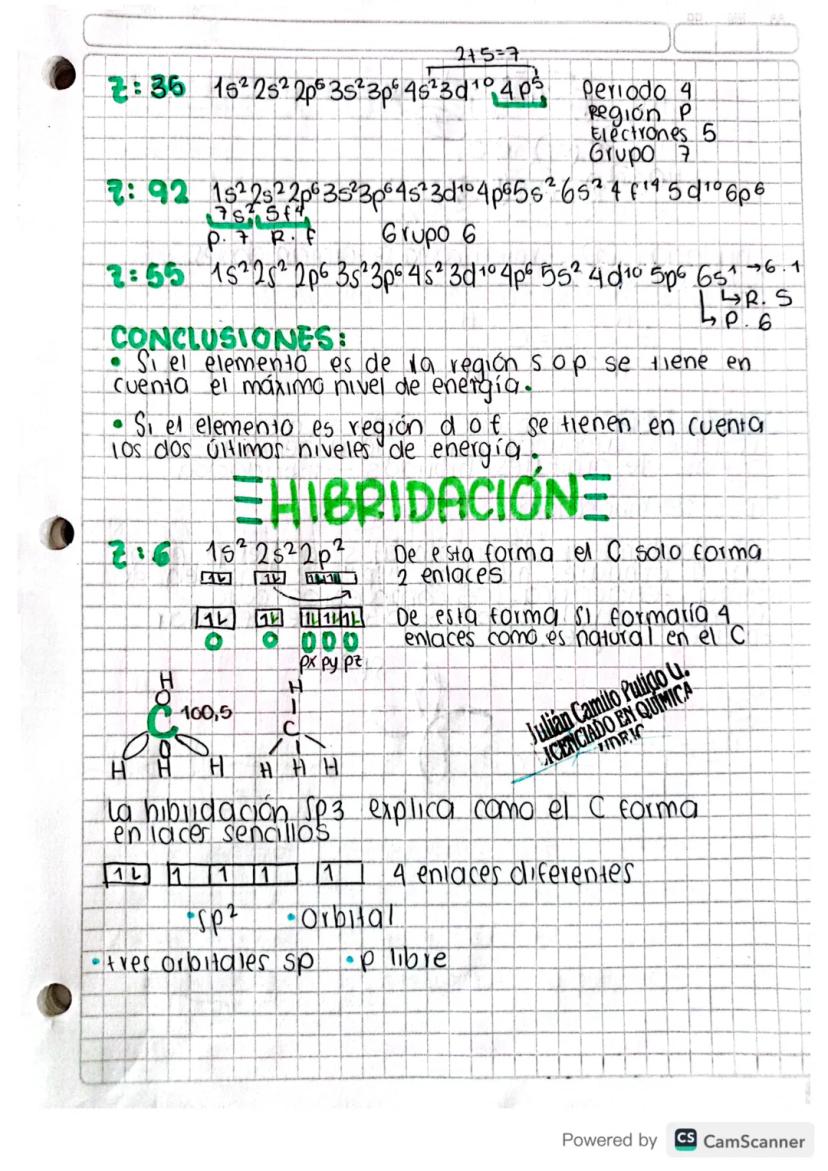 2+5=7
Z: 36 1s² 2s² 2p⁶ 3s² 3p⁶ 4s² 3d¹⁰ 4p⁵ Periodo 4
Región P
Electrones 5
Grupo 7
Z: 92 1s² 2s² 2p⁶ 3s² 3p⁶ 4s² 3d¹⁰ 4p⁶ 5s² 6s² 4f¹⁴ 5d¹⁰ 6p⁶
7s² 5f⁴
P. 7 R. f Grupo 6
Z: 55 1s² 2s² 2p⁶ 3s² 3p⁶ 4s² 3d¹⁰ 4p⁶ 5s² 4d¹⁰ 5p⁶ 6s¹ → G. 1
↳ R. S
↳ P. 6
CONCLUSIONES:
• Si el elemento es de la región s o p se tiene en
cuenta el máximo nivel de energía.
• Si el elemento es región d o f se tienen en cuenta
los dos últimos niveles de energía.
HIBRIDACIÓN
Z: 6 1s² 2s² 2p² De esta forma el C solo forma
2 enlaces
De esta forma si formaría 4
enlaces como es natural en el C
px py pz
H
C 100,5
H H H
H
C
H H H
Julián Camilo Pulido U.
LICENCIADO EN QUÍMICA
La hibridación sp3 explica como el C forma
enlaces sencillos
1 1 1 1 1 4 enlaces diferentes
• sp² • orbital
• tres orbitales sp • p libre
Powered by CS CamScanner